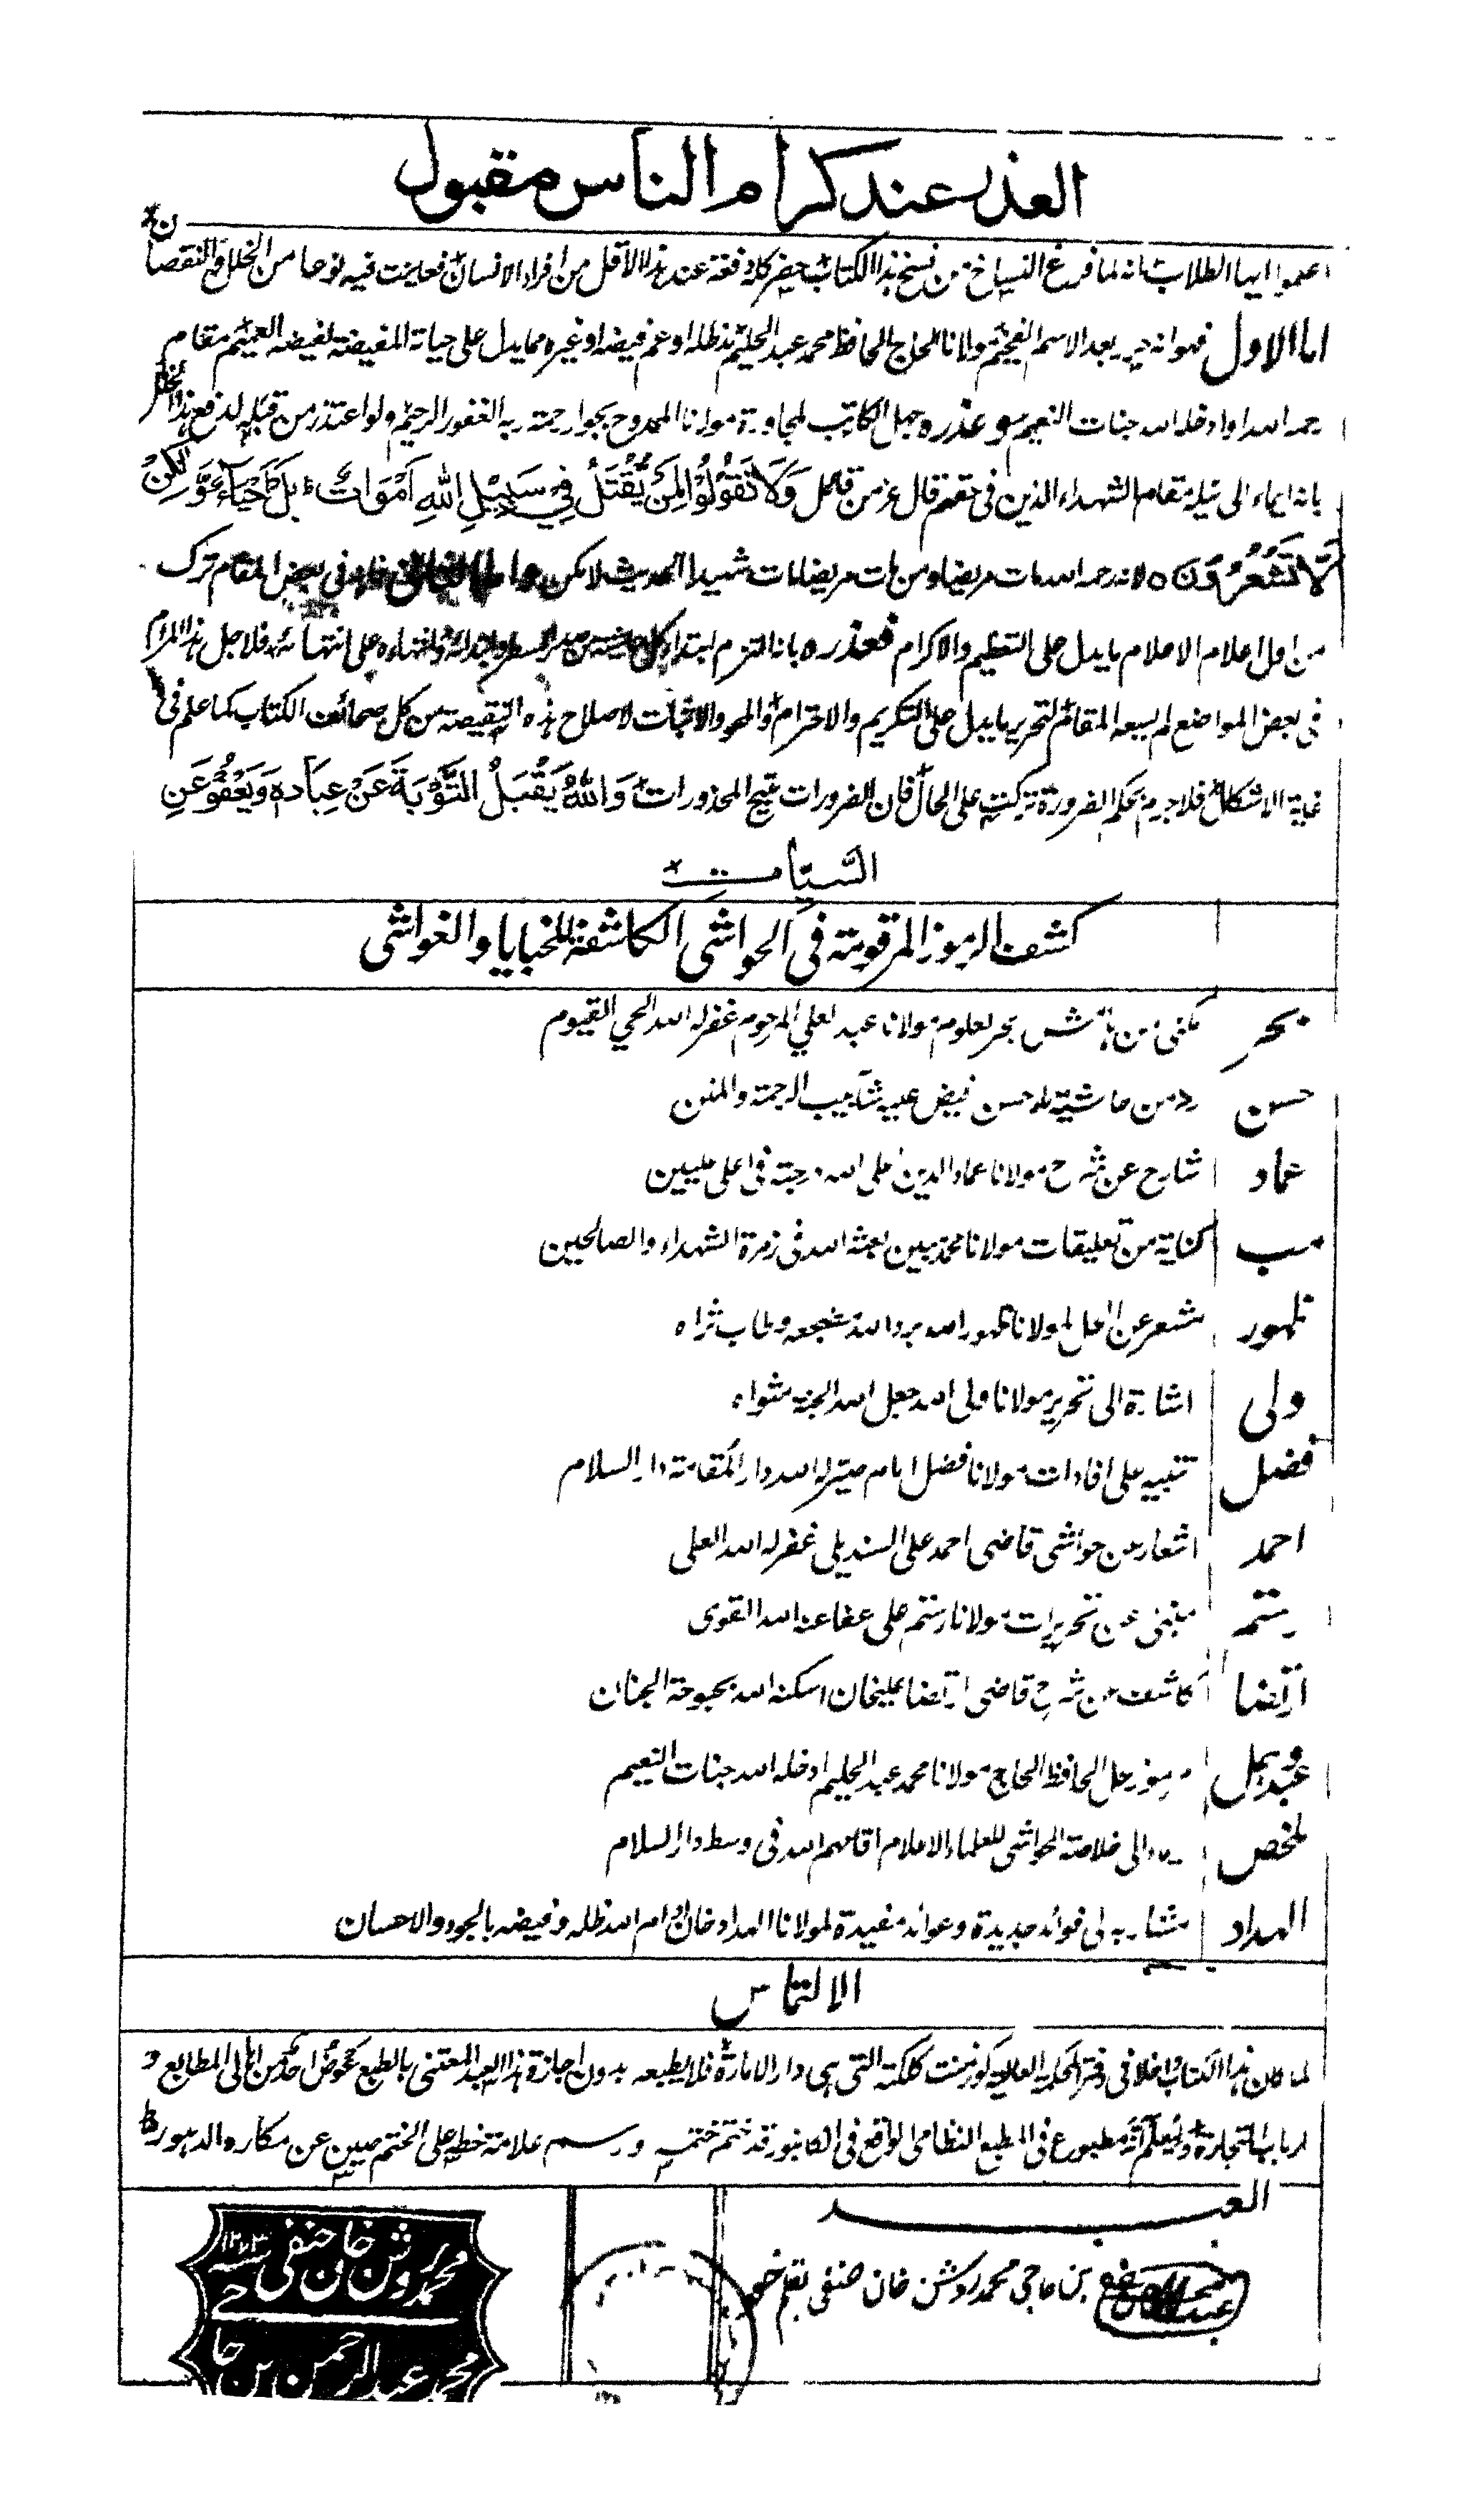 العذر عند كرام الناس مقبول
اعلموا ايها الطلاب بانه لما فرغ النساخ من نسخ هذا الكتاب حضر كله دفعة عند هذا الاقل من افراد الانسان فعاينت فيه نوعا من الخلل والنقصان
اما الاول فهو انه حرر بعد الاسم الفخيم مولانا الحاج الحافظ محمد عبد الحليم مد ظله او عم فيضه او غيره مما يدل على حياته المفيضة لفيضه العميم مقام
رحمه الله او ادخله الله جنات النعيم وعذره جهل الكاتب لمجاورة مولانا الممدوح بجوار رحمة ربه الغفور الرحيم ولو اعتذر من قبله لدفع هذا الخلل
بانه ايماء الى نيله مقام الشهداء الذين فى حقهم قال عز من قائل وَلَا تَقُولُوْا لِمَنْ يُّقْتَلُ فِيْ سَبِيْلِ اللّٰهِ اَمْوَاتٌ بَلْ اَحْيَآءٌ وَّلٰكِنْ
لَّا تَشْعُرُوْنَ ه لانه رحمه الله مات مريضا ومن مات مريضا مات شهيدا الحديث لا يمكن واما الثانى فى بعض المقام ترك
من اول اعلام الاعلام ما يدل على التعظيم والاكرام فعذره بانه التزم ابتداء كل حاشية من صدر السطر وانتهاءه على انتهائه فلاجل هذا المرام
فى بعض المواضع لم يسعه المقام لتحرير ما يدل على التكريم والاحترام والمحو والاثبات لاصلاح هذه النقيصة من كل صحائف الكتاب كما علم فى
غاية الاشكال فلا جرم بحكم الضرورة تركت على الحال فان الضرورات تبيح المحذورات وَاللّٰهُ يَقْبَلُ التَّوْبَةَ عَنْ عِبَادِهٖ وَيَعْفُوْ عَنِ
السَّيِّاٰت
كشف الرموز المرقومة فى الحواشى الكاشفة للخبايا والغواشى
بحر مكنى من هامش بحر العلوم مولانا عبد العلي المرحوم غفر له الله الحي القيوم
حسن رمز من حاشية ملا حسن فيض عليه شآبيب الرحمة والمنن
عماد شارح عن شرح مولانا عماد الدين اعلى الله درجته فى اعلى عليين
مب كناية من تعليقات مولانا محمد مبين بعثه الله فى زمرة الشهداء والصالحين
ظهور مشعر عن الحل لمولانا ظهور الله برد الله مضجعه وطاب ثراه
ولى اشارة الى تحرير مولانا ولى الله جعل الله الجنة مثواه
فضل تنبيه على افادات مولانا فضل امام صير له الله دار المقامة دار السلام
احمد اشعار من حواشى قاضى احمد على السنديلى غفر له الله العلى
رستم مبنى عن تحريرات مولانا رستم على عفا عنه الله القوى
ارتضا كاشف من شرح قاضى ارتضا عليخان اسكنه الله بحبوحة الجنان
عبد وبحل مرموز حل الحافظ الحاج مولانا محمد عبد الحليم ادخله الله جنات النعيم
ملخص الى خلاصة الحواشى للعلماء الاعلام اقامهم الله فى وسط دار السلام
الهداد مشار به الى فوائد جديدة وعوائد مفيدة لمولانا الهداد خان ادام الله ظله وفيضه بالجود والاحسان
الالتماس
لما كان هذا الكتاب داخلا فى دفتر الحكمة العالية كورنمنت كلكته التى هى دار الامارة فلا يطبعه بدون اجازة هذا العبد المعتنى بالطبع كمخوض احد من اهالى المطابع و
ارباب التجارة وليعلم انه مطبوع فى المطبع النظامى الواقع فى الكانپور قد ختم ختمه ورسم علامة خطه على الختم صين عن مكاره الدهور
العبد
بن حاجى محمد روشن خان حنفى بقلم خود
محمد روشن خان حنفى ١٢٧٣
محمد عبد الرحمن بن حا